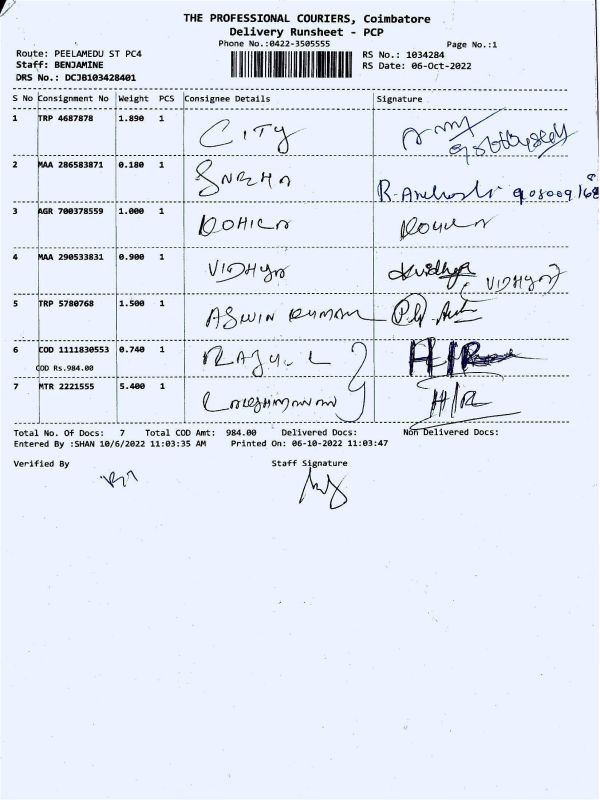 THE PROFESSIONAL COURIERS, Coimbatore
Delivery Runsheet - PCP
Phone No.:0422-3505555
Page No.:1
Route: PEELAMEDU ST PC4
Staff: BENJAMINE
DRS No.: DCJB103428401
RS No.: 1034284
RS Date: 06-Oct-2022
S No Consignment No Weight PCS Consignee Details Signature
1 TRP 4687878 1.890 1 CITY
2 MAA 286583871 0.180 1 SNEHA
3 AGR 700378559 1.000 1 ROHICA
4 MAA 290533831 0.900 1 VIDHYA Vidhya VIDHYA
5 TRP 5780768 1.500 1 ASWIN KUMAR
6 COD 1111830553 0.740 1 H/R
COD Rs.984.00
7 MTR 2221555 5.400 1 H/R
Total No. Of Docs: 7 Total COD Amt: 984.00 Delivered Docs: Non Delivered Docs:
Entered By :SHAN 10/6/2022 11:03:35 AM Printed On: 06-10-2022 11:03:47
Verified By Staff Signature